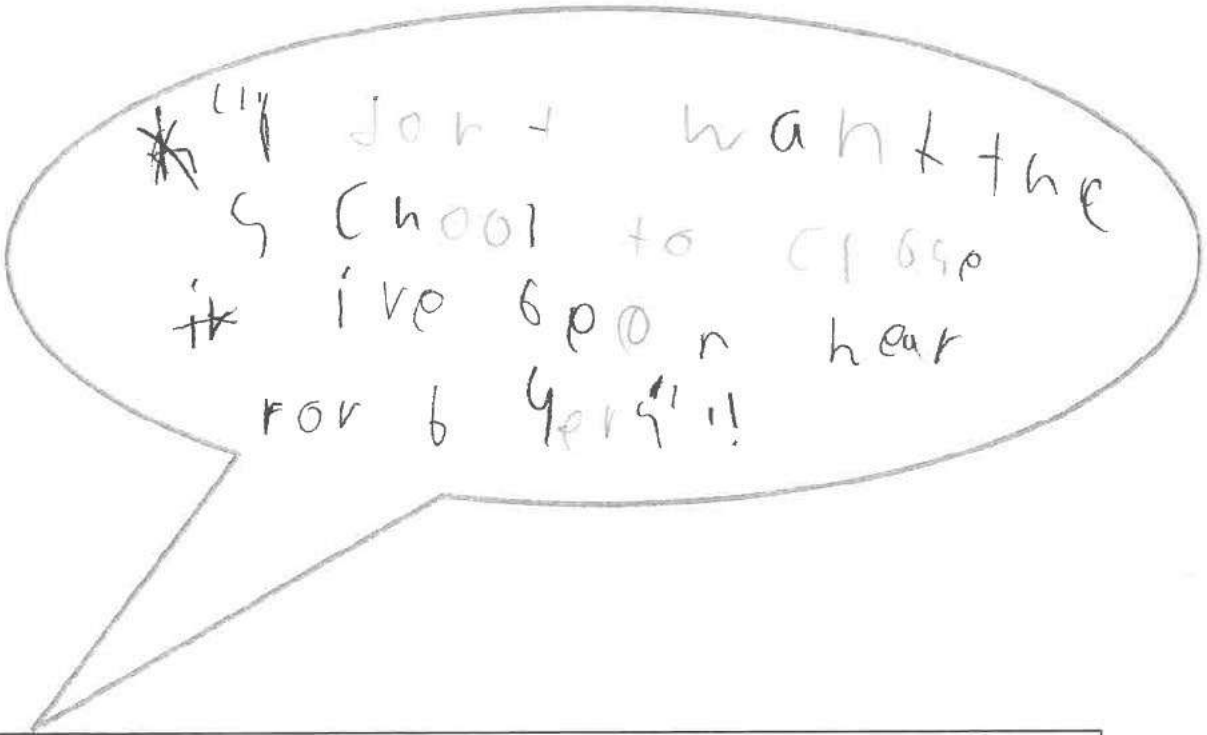 "I dont want the
school to close
ive been hear
for 6 yers"!!